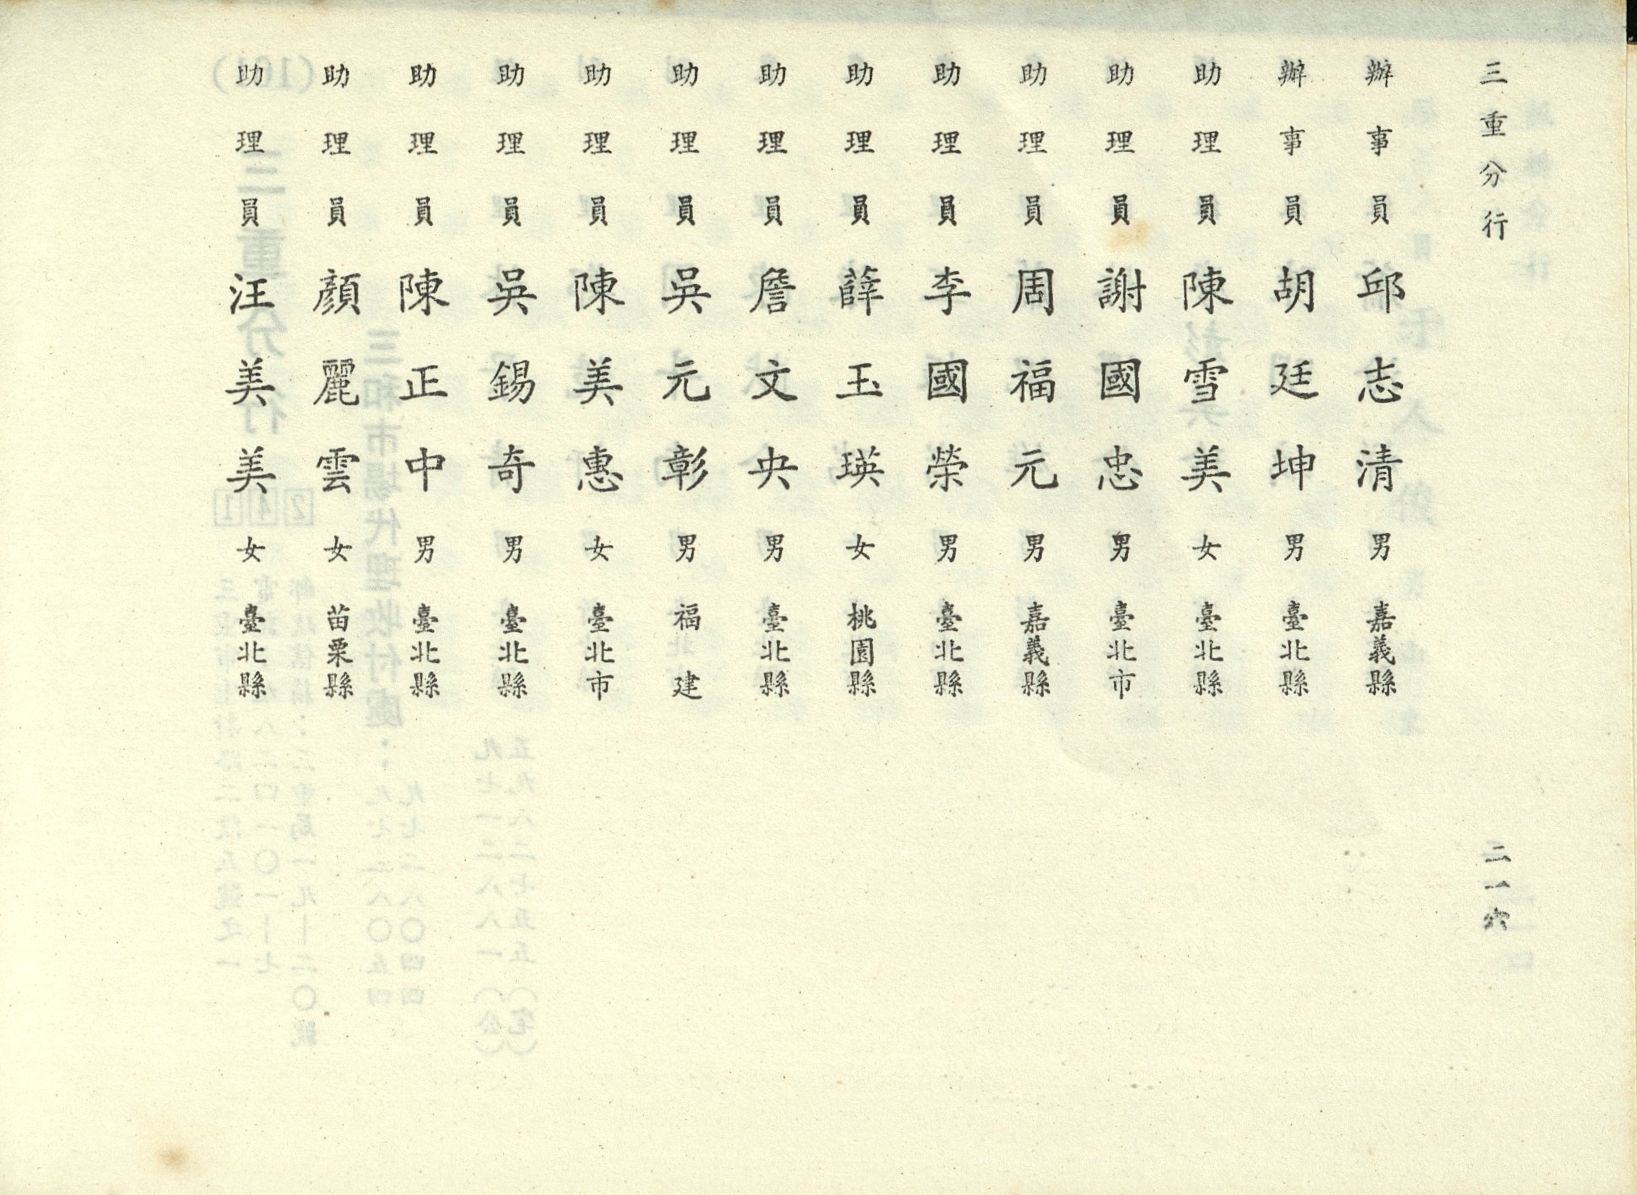 三重分行
二一六
辦事員 邱志清 男 嘉義縣
辦事員 胡廷坤 男 臺北縣
助理員 陳雪美 女 臺北縣
助理員 謝國忠 男 臺北市
助理員 周福元 男 嘉義縣
助理員 李國榮 男 臺北縣
助理員 薛玉瑛 女 桃園縣
助理員 詹文央 男 臺北縣
助理員 吳元彰 男 福建
助理員 陳美惠 女 臺北市
助理員 吳錫奇 男 臺北縣
助理員 陳正中 男 臺北縣
助理員 顏麗雲 女 苗栗縣
助理員 汪美美 女 臺北縣